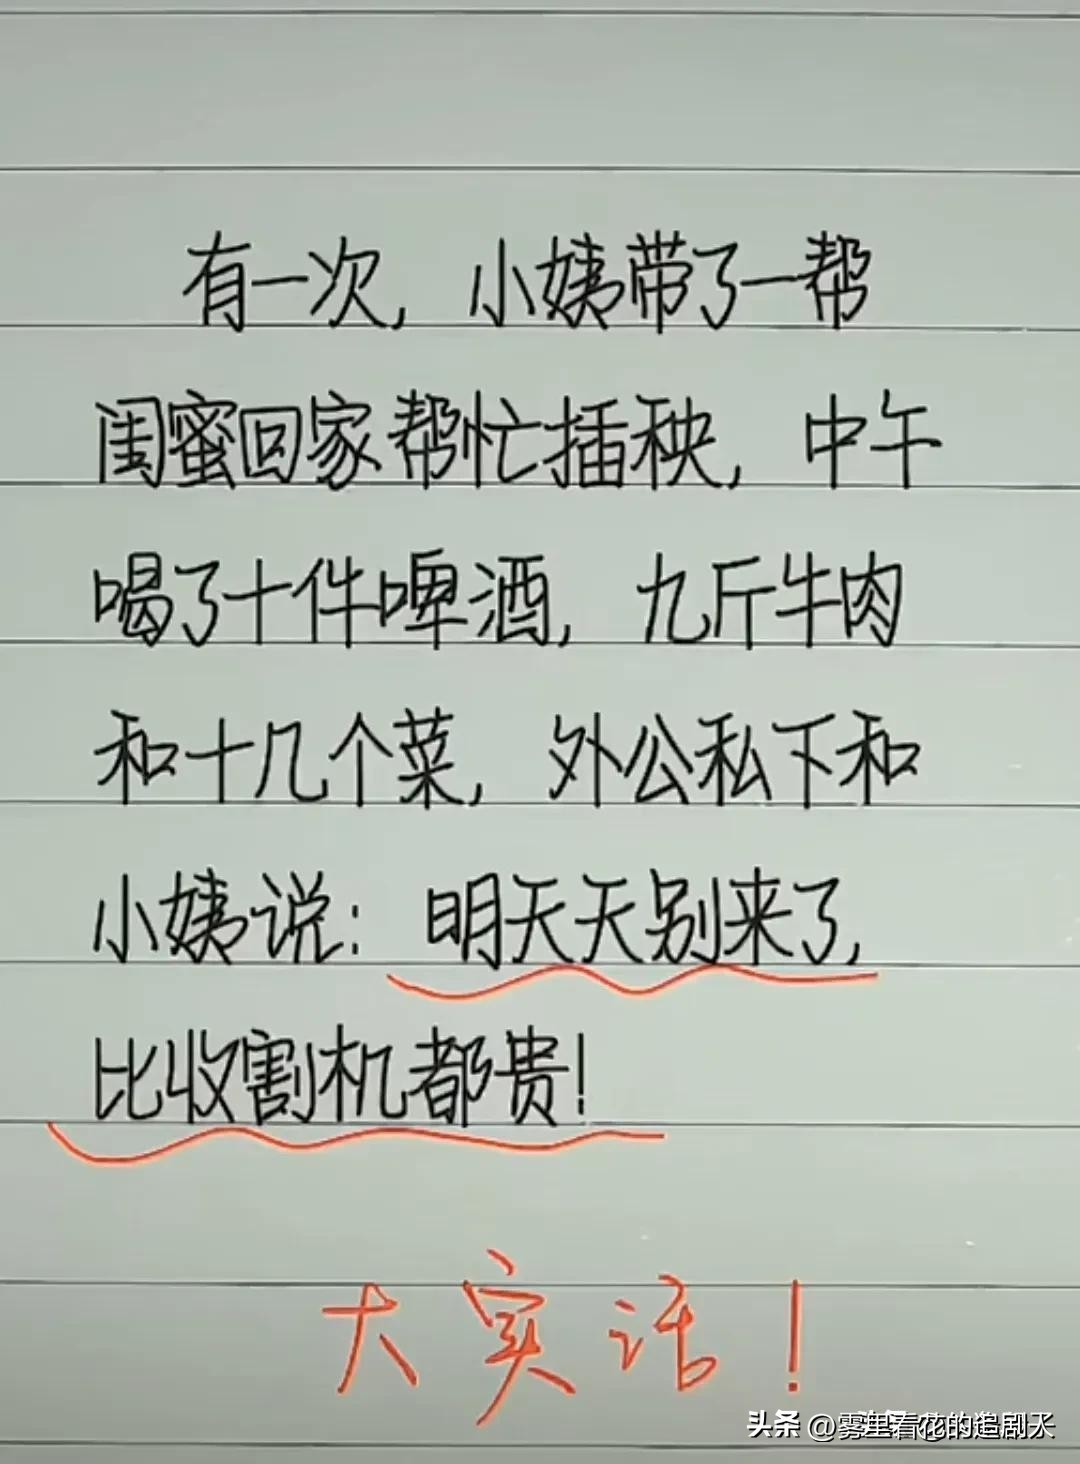 有一次，小姨带了一帮
闺蜜回家帮忙插秧，中午
喝了十件啤酒，九斤牛肉
和十几个菜，外公私下和
小姨说：明天天别来了，
比收割机都贵！
大实话！
头条 @雾里看花的追剧人